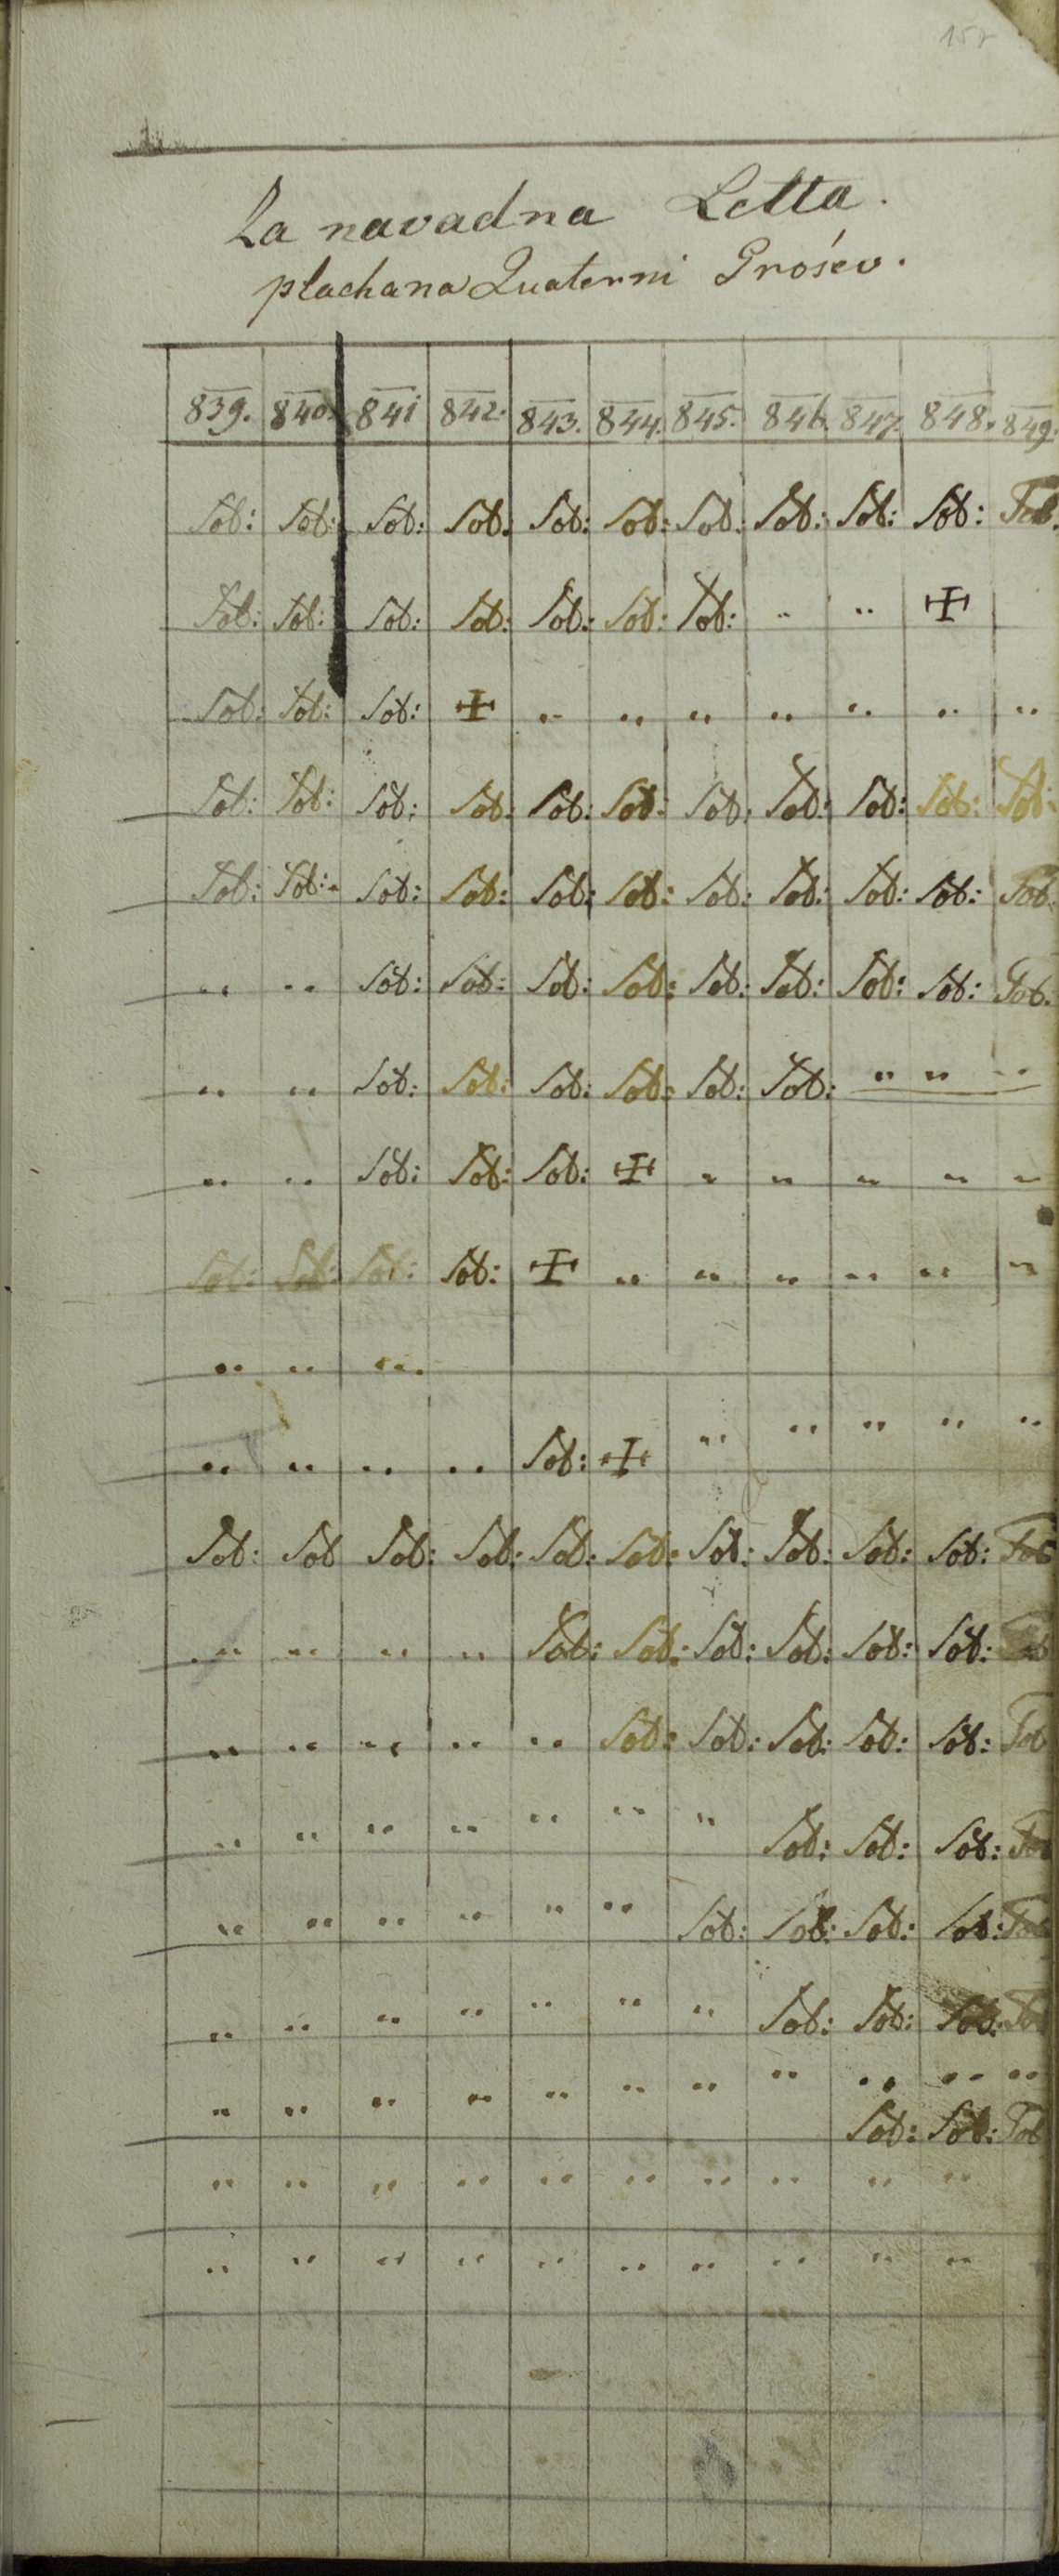 157
Za navadna Letta.
plachana Quaterni Grošev.
839. 840. 841 842. 843. 844. 845. 846. 847. 848. 849.
Sol: Sol: Sol: Sol. Sol: Sol: Sol. Sol: Sol: Sol: Sol.
Sol: Sol: Sol: Sol: Sol: Sol: Sol: " " ✠
Sol: Sol: Sol: ✠ " " " " " " "
Sol: Sol: Sol: Sol: Sol: Sol: Sol: Sol: Sol: Sol: Sol:
Sol: Sol: Sol: Sol: Sol: Sol: Sol: Sol: Sol: Sol: Sol.
" " Sol: Sol: Sol: Sol: Sol: Sol: Sol: Sol: Sol.
" " Sol: Sol: Sol: Sol: Sol: Sol: " " "
" " Sol: Sol: Sol: ✠ " " " " "
Sol: Sol: Sol: Sol: ✠ " " " " " "
" " "
" " " " Sol: ✠ " " " " "
Sol: Sol Sol: Sol: Sol: Sol: Sol: Sol: Sol: Sol: Sol
" " " " Sol: Sol: Sol: Sol: Sol: Sol: Sol
" " " " " Sol: Sol: Sol: Sol: Sol: Sol
" " " " " " " Sol: Sol: Sol: Sol
" " " " " " Sol: Sol: Sol: Sol: Sol
" " " " " " " Sol: Sol: Sol: Sol
" " " " " " " " " " "
Sol: Sol: Sol
" " " " " " " " " "
" " " " " " " " " "